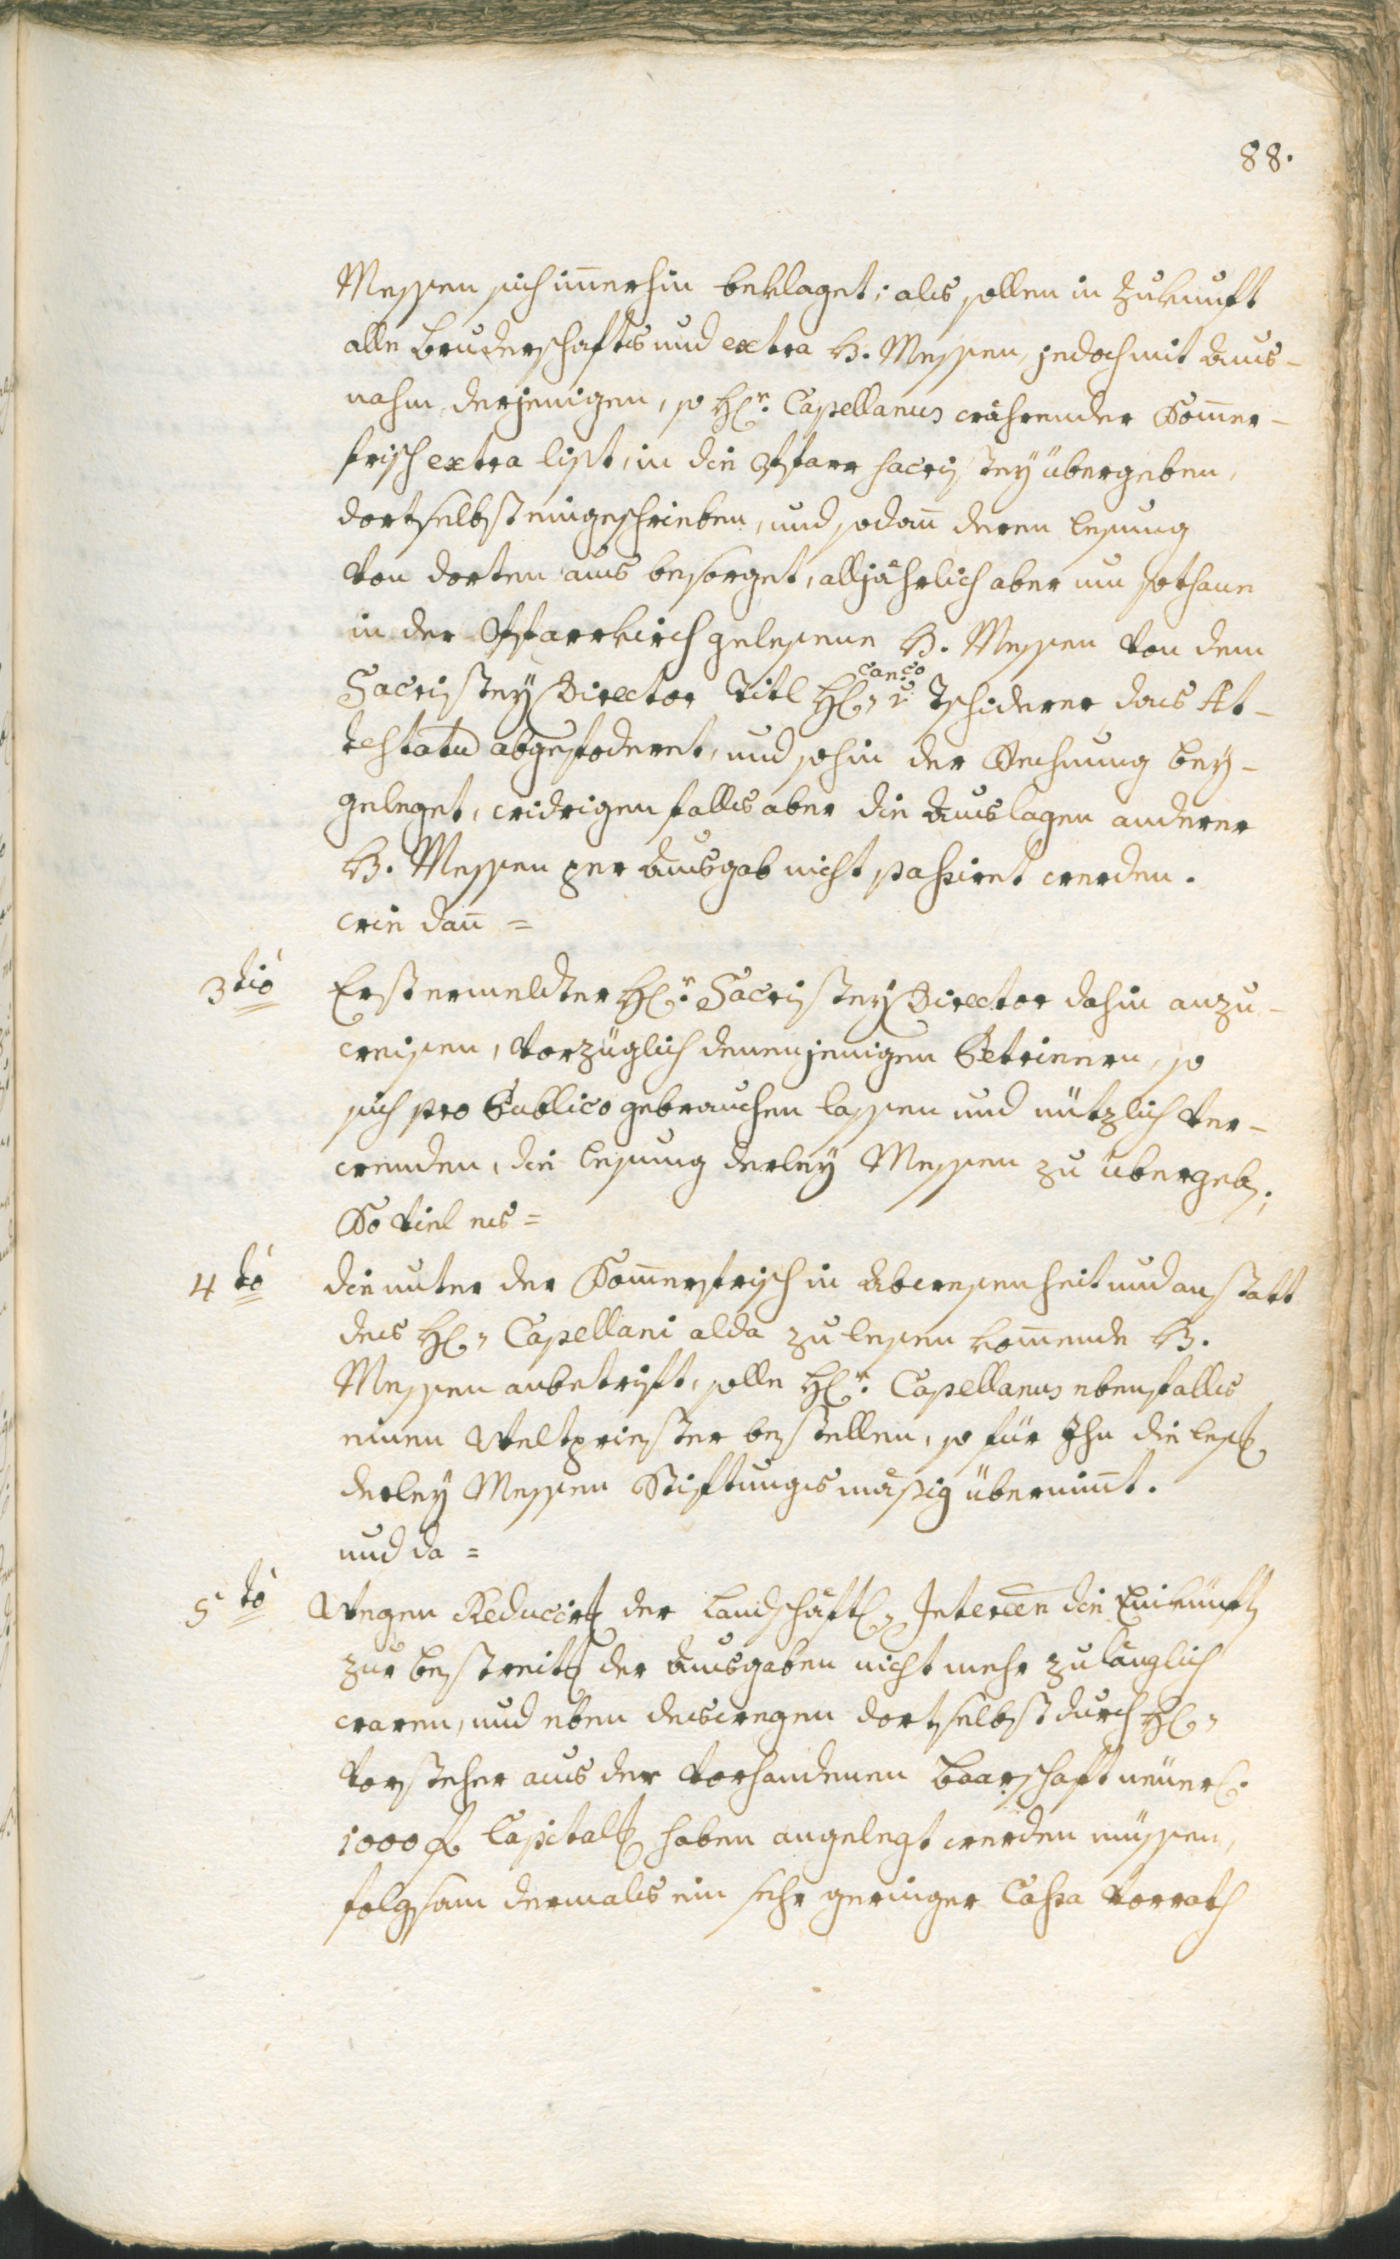 88.
Messen sich im̄erhin beklaget; als sollen in Zukunft
alle Bruderschafts und extra H. Messen, jedoch mit Aus-
nahm derjenigen, so H[er]r Capellanus währender Som̄er-
frisch extra list, in die Pfarr Sacristeÿ übergeben,
dortselbst eingeschrieben, und sodan̄ deren lesung
von dorten aus besorget, alljährlich aber um sothane
in der Pfarrkirch gelesene H. Messen von dem
Sacristeÿ Director Titl H[errn] v. Tschiderer das At-
testatu͞ abgefoderet, und sohin der Rechnung beÿ-
geleget, widrigenfalls aber die Auslagen anderer
H. Messen per Ausgab nicht passiret werden.
wie dan̄ =
3tiò Erstermeldter H[er]r Sacristeÿ Director dahin anzu-
weisen, vorzüglich denenjenigen Petrinern, so
sich pro Publico gebrauchen lassen und nützlich ver-
wenden, die lesung derleÿ Messen zu übergeb[en];
So viel es =
4tò die unter der Som̄erfrisch in Abwesenheit und anstatt
des H[errn] Capellani alda zu lesen kom̄ende H.
Messen anbetrift, solle H[er]r Capellanus ebenfalls
einen Weltpriester bestellen, so für Ihn die les[ung]
derleÿ Messen Stiftungsmässig übernim̄t.
und da =
5tò Wegen Reducir[ung] der Landschäft[lichen] Intereen die Einkünft[en]
zur bestreit[ung] der Ausgaben nicht mehr zulänglich
waren, und eben deswegen dortselbst durch H[errn]
Vorsteher aus der vorhandenen Baarschaft neüer[lich]
1000 f Capital[ien] haben angelegt werden müssen,
folgsam dermals ein sehr geringer Cassa Vorrath